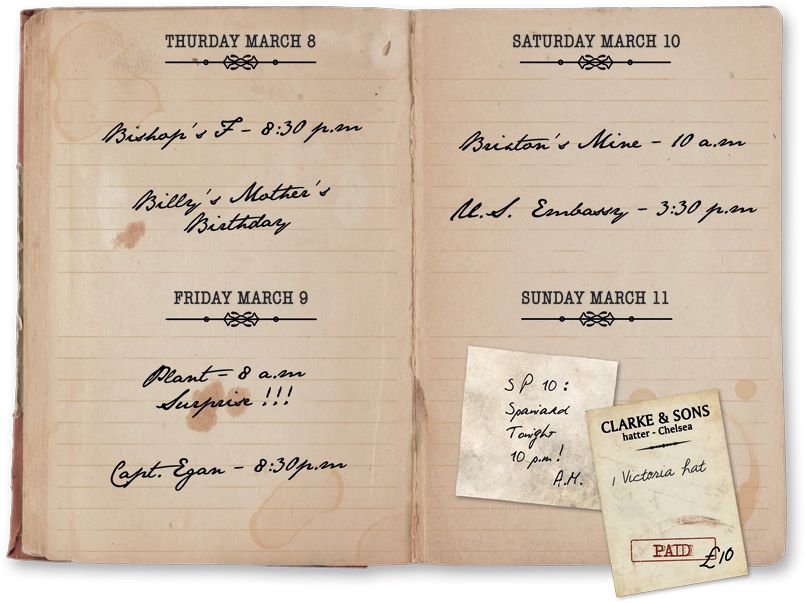 THURDAY MARCH 8
Bishop's F - 8:30 p.m
Billy's Mother's
Birthday
FRIDAY MARCH 9
Plant - 8 a.m
Surprise !!!
Capt. Egan - 8:30p.m
SATURDAY MARCH 10
Brixton's Mine - 10 a.m
U.S. Embassy - 3:30 p.m
SUNDAY MARCH 11
S P 10 :
Spaniard
Tonight
10 p.m !
A.M.
CLARKE & SONS
hatter - Chelsea
1 Victoria hat
PAID £10